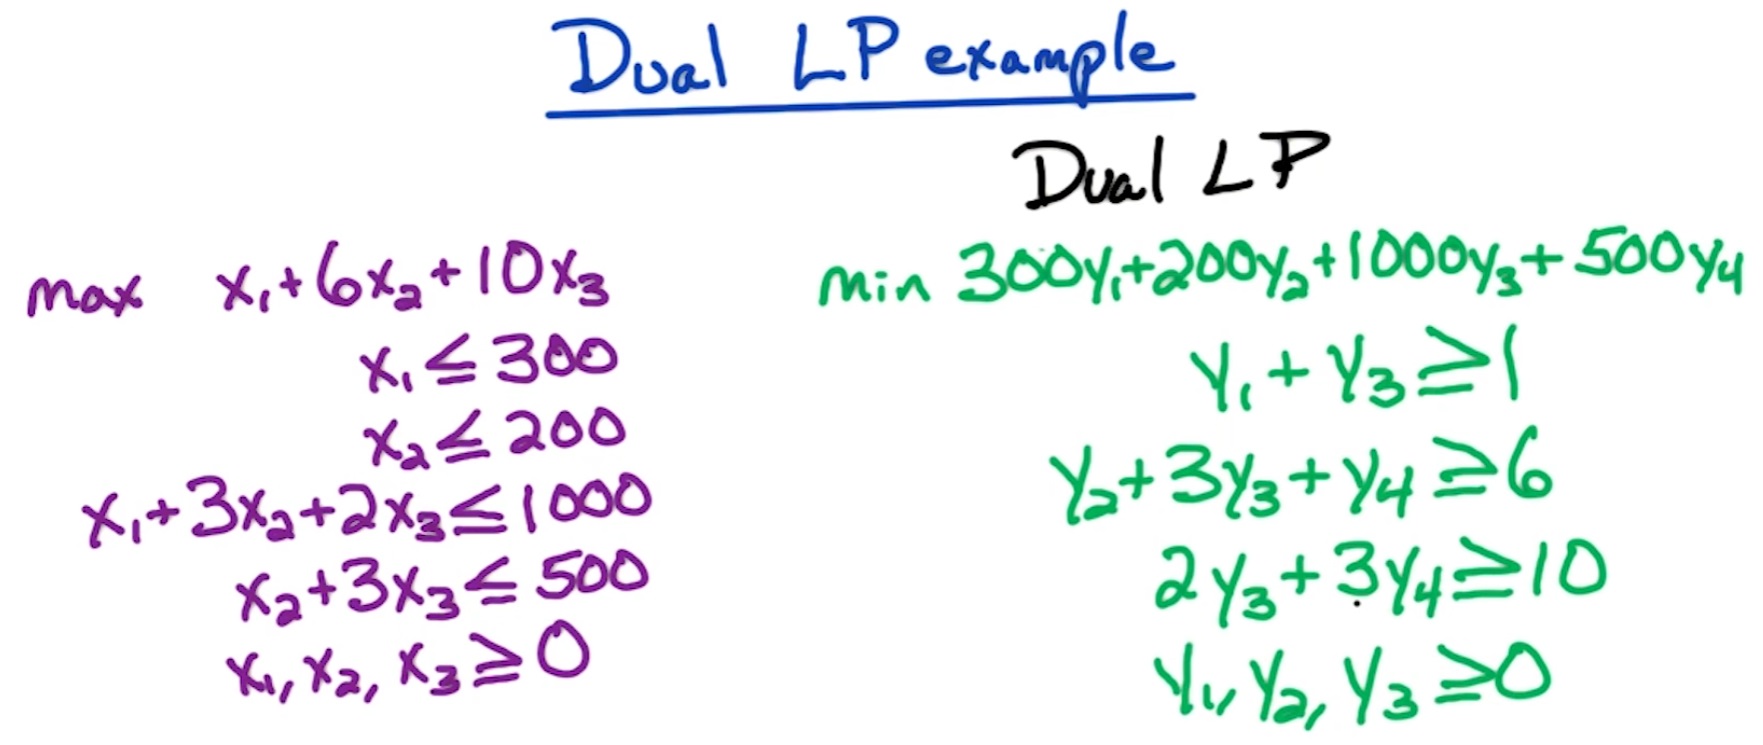 Dual LP example
Dual LP
max x₁+6x₂+10x₃
x₁≤300
x₂≤200
x₁+3x₂+2x₃≤1000
x₂+3x₃≤500
x₁,x₂,x₃≥0
min 300y₁+200y₂+1000y₃+500y₄
y₁+y₃≥1
y₂+3y₃+y₄≥6
2y₃+3y₄≥10
y₁,y₂,y₃≥0